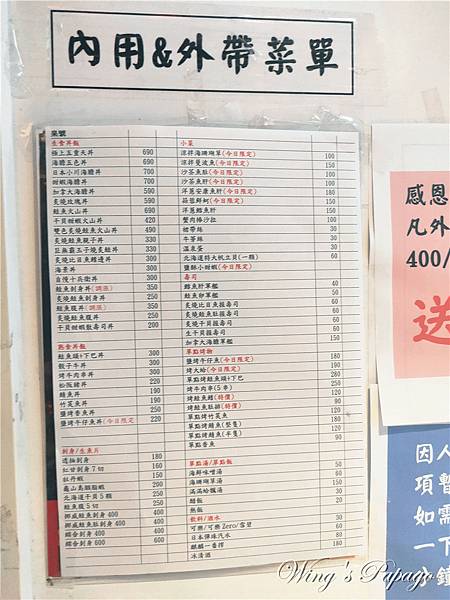 內用&外帶菜單
菜號
生食丼飯
極上五重天丼 690
海膽五色丼 690
日本小川海膽丼 700
甜蝦海膽丼 700
加拿大海膽丼 590
炙燒玫瑰丼 590
鮭魚火山丼 420
干貝甜蝦火山丼 490
雙色炙燒鮭魚火山丼 490
炙燒鮭魚親子丼 330
巨無霸玉子燒炙鮭丼 330
炙燒比目魚鰭邊丼 330
海景丼 330
自慢十兵衛丼 330
鮭魚刺身丼(調漲) 350
炙燒鮭刺身丼 350
鮭魚腹丼(調漲) 350
炙燒鮭魚腹丼 350
干貝甜蝦散壽司丼 200
熟食丼飯
鮭魚頭+下巴丼 300
骰子牛丼 300
烤牛肉串丼 300
松阪豬丼 220
鯖魚丼 190
竹筴魚丼 190
鹽烤香魚丼 220
鹽烤牛仔魚丼(今日限定 220
刺身/生魚片
透抽刺身 160
紅甘刺身7切 160
牡丹蝦 150
龜山島胭脂蝦 200
北海道干貝5顆 250
鮭魚腹5切 200
挪威鮭魚刺身400 400
挪威鮭魚肚刺身400 400
綜合刺身400 400
綜合刺身600 600
小菜
涼拌海珊瑚草(今日限定) 100
涼拌曼波魚(今日限定) 150
沙茶魚肚(今日限定) 150
沙茶魚肝(今日限定) 180
洋蔥安康魚肝(今日限定) 180
蒜蓉鮮蚵(今日限定) 150
洋蔥鱈魚肝 150
蟹肉棒沙拉 100
裙帶絲 30
牛蒡絲 30
溫泉蛋 30
北海道特大帆立貝(一顆) 60
鹽酥小甜蝦(今日限定)
壽司
鱈魚肝軍艦 40
鮭魚卵軍艦 50
炙燒比目魚握壽司 80
炙燒鮭魚肚握壽司 60
炙燒干貝握壽司 60
生干貝握壽司 60
加拿大海膽軍艦 150
單點烤物
鹽烤牛仔魚(今日限定) 180
烤大蛤(今日限定) 190
單點烤鮭魚頭+下巴 280
烤牛肉串(5串) 250
烤鮭魚鰭(特價) 120
烤鮭魚肚排(特價) 90
單點烤竹筴魚 120
單點烤鯖魚(整隻) 180
單點烤鯖魚(半隻) 90
單點香魚 90
單點湯/單點飯
海鮮味噌湯 50
海珊瑚草湯 150
滿滿蛤蠣湯 50
醋飯 20
熱飯 20
飲料/酒水
可樂/可樂Zero/雪碧 30
日本彈珠汽水 60
麒麟一番搾 80
冰清酒 80
感恩
凡外
400/
送
因人
項暫
如需
一下
分鐘
Wing's Papago